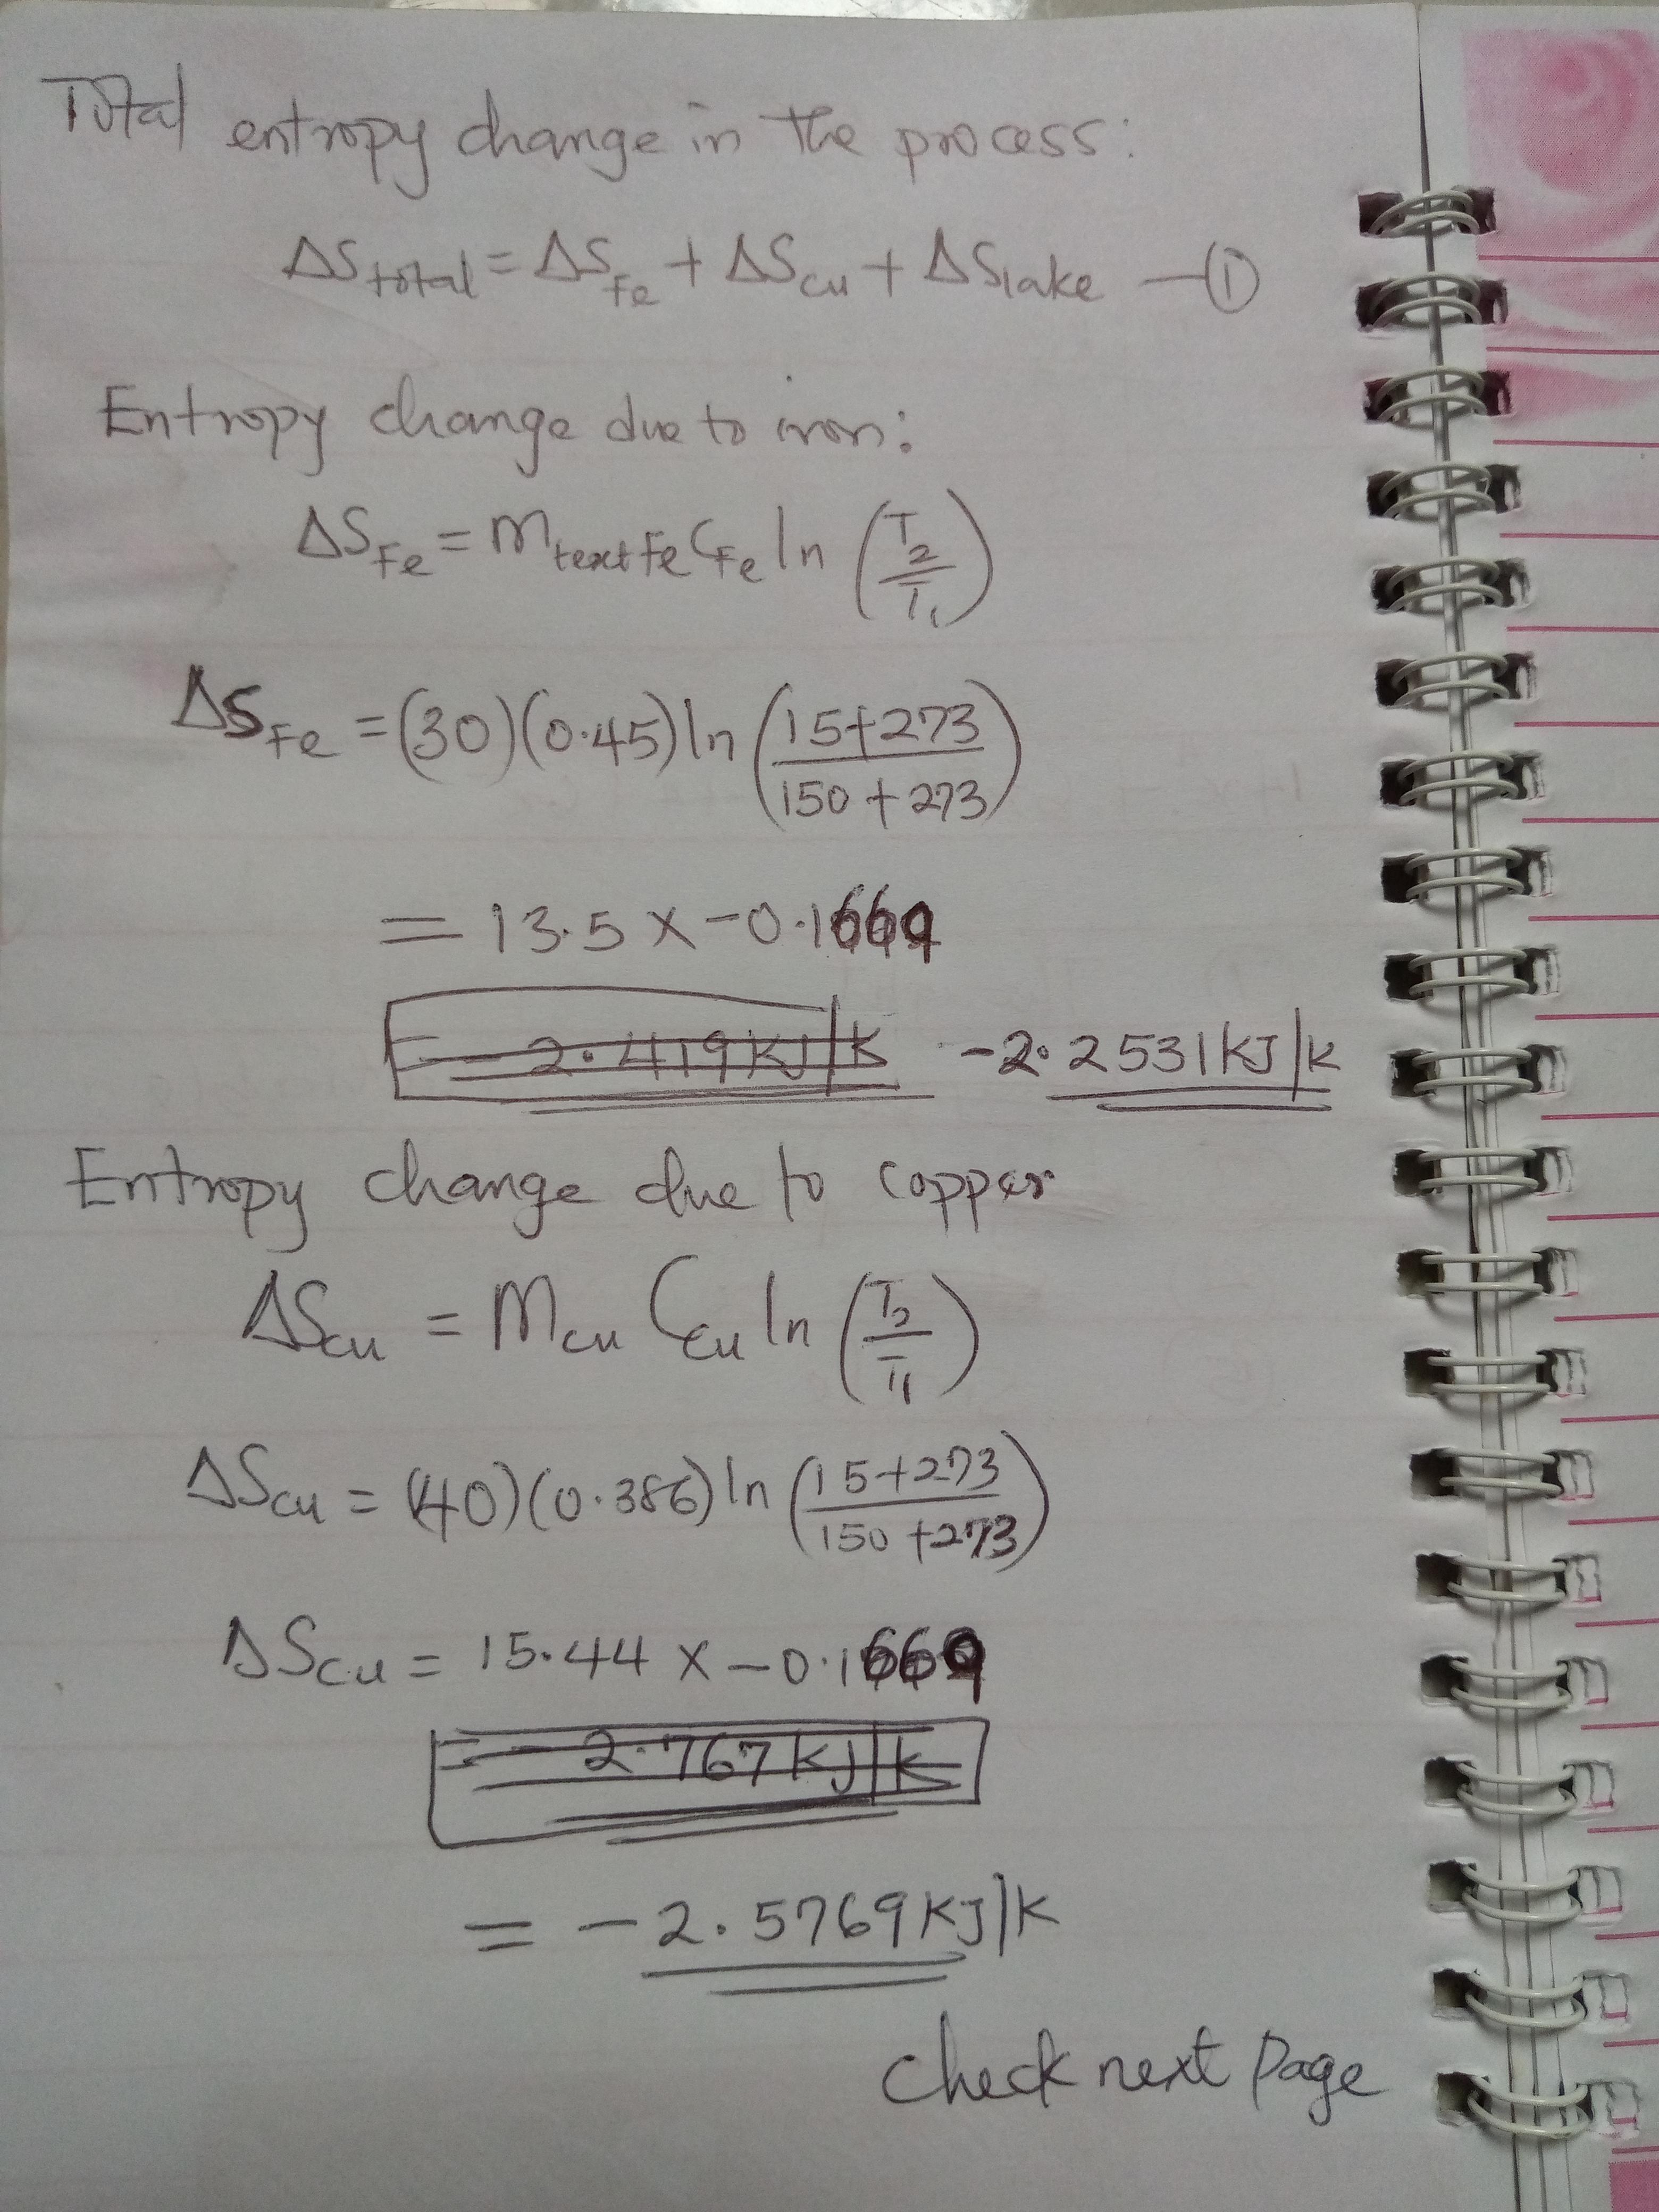 Total entropy change in the process:
ΔS total = ΔS Fe + ΔS Cu + ΔS lake — ①
Entropy change due to iron:
ΔS Fe = m text Fe C Fe ln (T2/T1)
ΔS Fe = (30)(0.45) ln (15+273/150+273)
= 13.5 x -0.1669
= -2.419 KJ/K -2.2531 KJ/K
Entropy change due to copper
ΔS Cu = M Cu C Cu ln (T2/T1)
ΔS Cu = (40)(0.386) ln (15+273/150+273)
ΔS Cu = 15.44 x -0.1669
= -2.767 KJ/K
= -2.5769 KJ/K
check next page